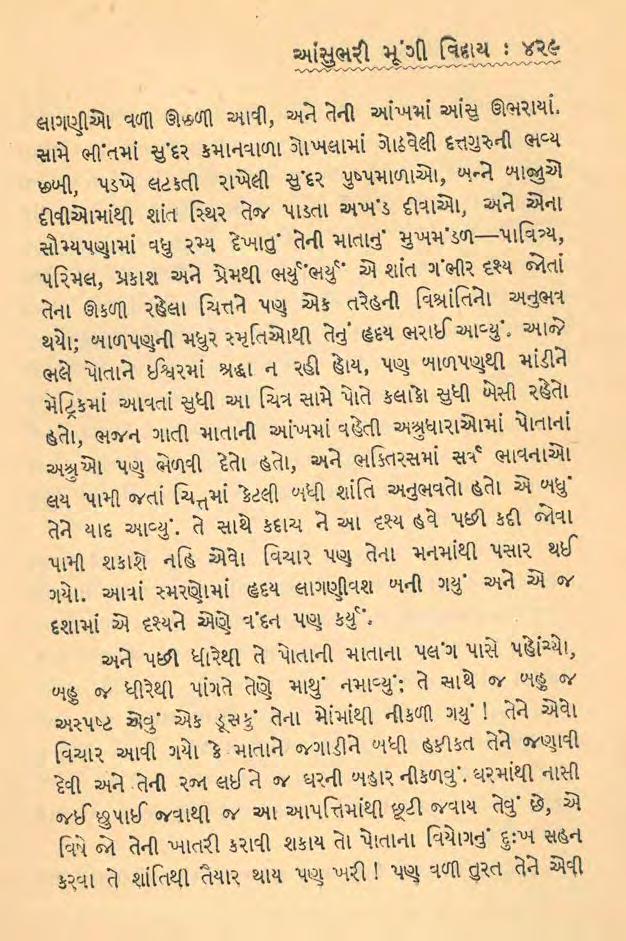 આંસુભરી મૂંગી વિદાય : ૪૨૯
લાગણીઓ વળી ઊછળી આવી, અને તેની આંખમાં આંસુ ઊભરાયાં.
સામે ભીંતમાં સુંદર કમાનવાળા ગોખલામાં ગોઠવેલી દત્તગુરુની ભવ્ય
છબી, પડખે લટકતી રાખેલી સુંદર પુષ્પમાળાઓ, બન્ને બાજુએ
દીવીઓમાંથી શાંત સ્થિર તેજ પાડતા અખંડ દીવાઓ, અને એના
સૌમ્યપણામાં વધુ રમ્ય દેખાતું તેની માતાનું મુખમંડળ—પાવિત્ર્ય,
પરિમલ, પ્રકાશ અને પ્રેમથી ભર્યુંભર્યું એ શાંત ગંભીર દૃશ્ય જોતાં
તેના ઊકળી રહેલા ચિત્તને પણ એક તરેહની વિશ્રાંતિનો અનુભવ
થયો; બાળપણની મધુર સ્મૃતિઓથી તેનું હૃદય ભરાઈ આવ્યું. આજે
ભલે પોતાને ઈશ્વરમાં શ્રદ્ધા ન રહી હોય, પણ બાળપણથી માંડીને
મૅટ્રિકમાં આવતાં સુધી આ ચિત્ર સામે પોતે કલાકો સુધી બેસી રહેતો
હતો, ભજન ગાતી માતાની આંખમાં વહેતી અશ્રુધારાઓમાં પોતાનાં
અશ્રુઓ પણ ભેળવી દેતો હતો, અને ભક્તિરસમાં સર્વ ભાવનાઓ
લય પામી જતાં ચિત્તમાં કેટલી બધી શાંતિ અનુભવતો હતો એ બધું
તેને યાદ આવ્યું. તે સાથે કદાચ ને આ દૃશ્ય હવે પછી કદી જોવા
પામી શકાશે નહિ એવો વિચાર પણ તેના મનમાંથી પસાર થઈ
ગયો. આવાં સ્મરણોમાં હૃદય લાગણીવશ બની ગયું અને એ જ
દશામાં એ દૃશ્યને એણે વંદન પણ કર્યું.
અને પછી ધીરેથી તે પોતાની માતાના પલંગ પાસે પહોંચ્યો,
બહુ જ ધીરેથી પાંગતે તેણે માથું નમાવ્યું; તે સાથે જ બહુ જ
અસ્પષ્ટ એવું એક ડૂસકું તેના મોંમાંથી નીકળી ગયું ! તેને એવો
વિચાર આવી ગયો કે માતાને જગાડીને બધી હકીકત તેને જણાવી
દેવી અને તેની રજા લઈને જ ઘરની બહાર નીકળવું. ઘરમાંથી નાસી
જઈ છુપાઈ જવાથી જ આ આપત્તિમાંથી છૂટી જવાય તેવું છે, એ
વિષે જો તેની ખાતરી કરાવી શકાય તો પોતાના વિયોગનું દુઃખ સહન
કરવા તે શાંતિથી તૈયાર થાય પણ ખરી ! પણ વળી તુરત તેને એવી